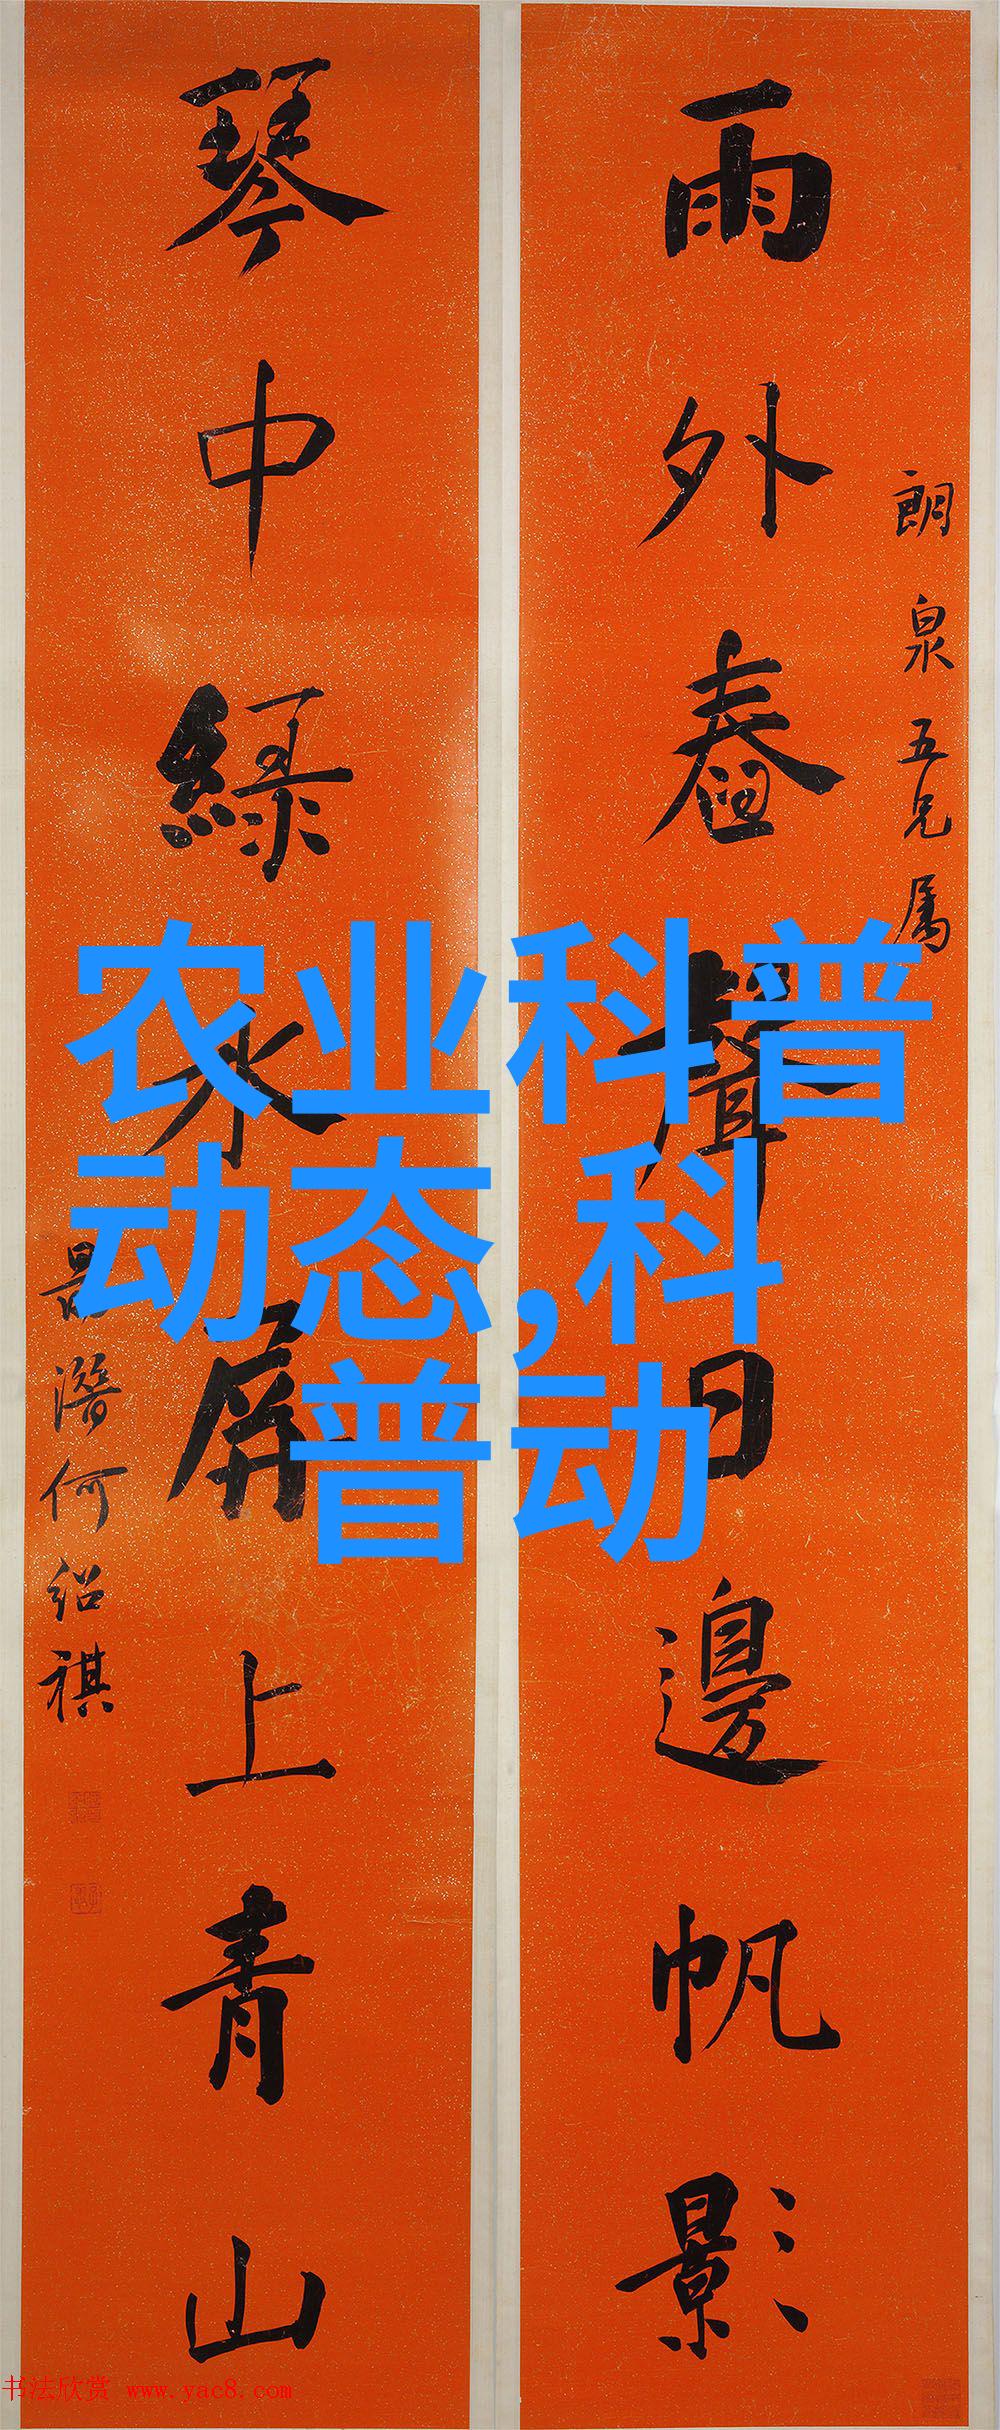 雨外春聲日邊帆影
朗泉五兄属
琴中綠水屏上青山
最潛何紹祺
农业科普
动态,科
普动
书法欣赏 www.yac8.com